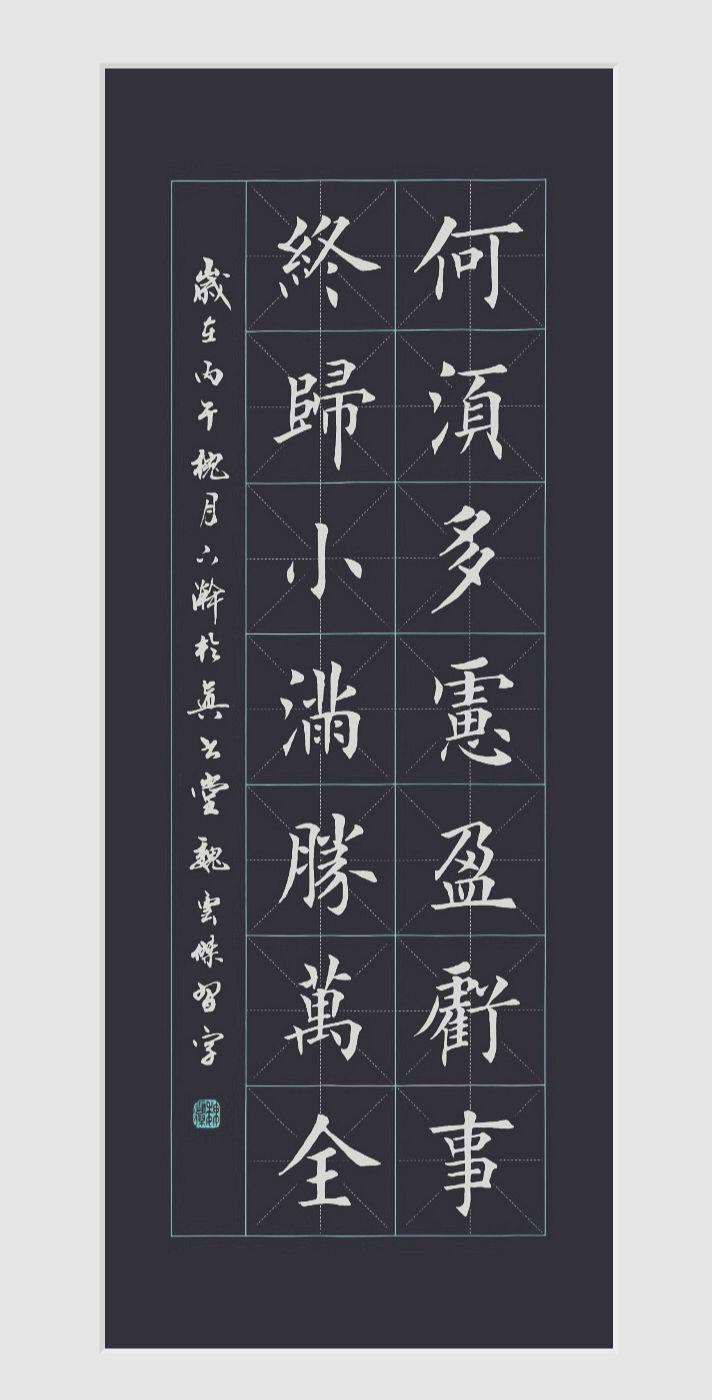 何湏多慮盈虧事
終歸小滿勝萬全
歲在丙午月下澣於眞書堂魏雲傑習字